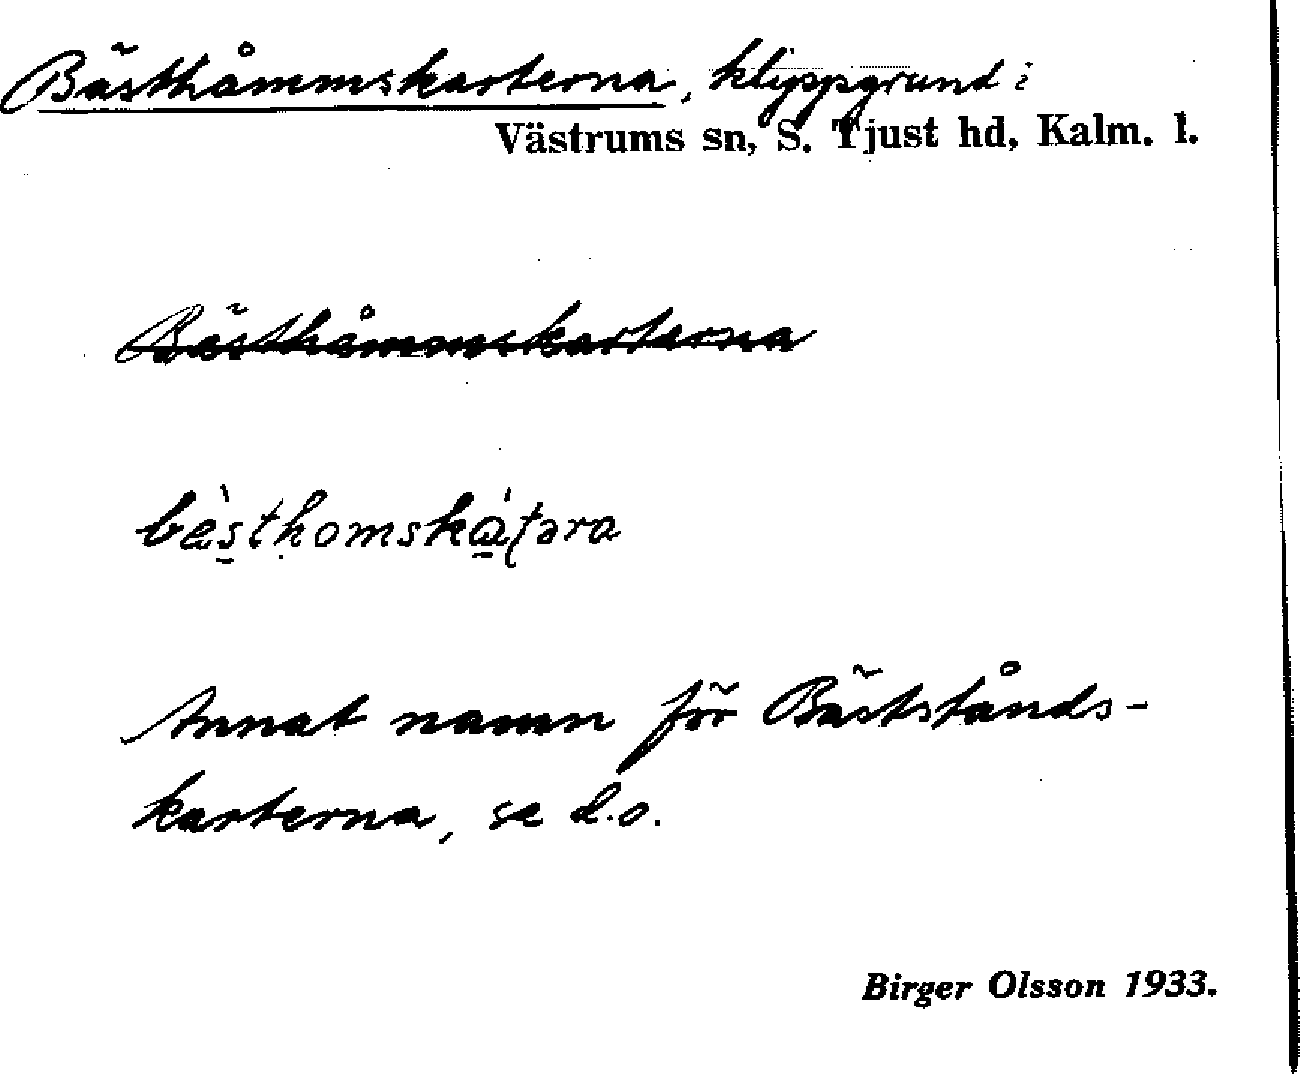 Bästhåmmskarterna, klippgrund i
Västrums sn, S. Tjust hd, Kalm. l.
Bästhåmmskarterna
bæ̀sthomskàʈəra
Annat namn för Bästslånds-
karterna, se d.o.
Birger Olsson 1933.